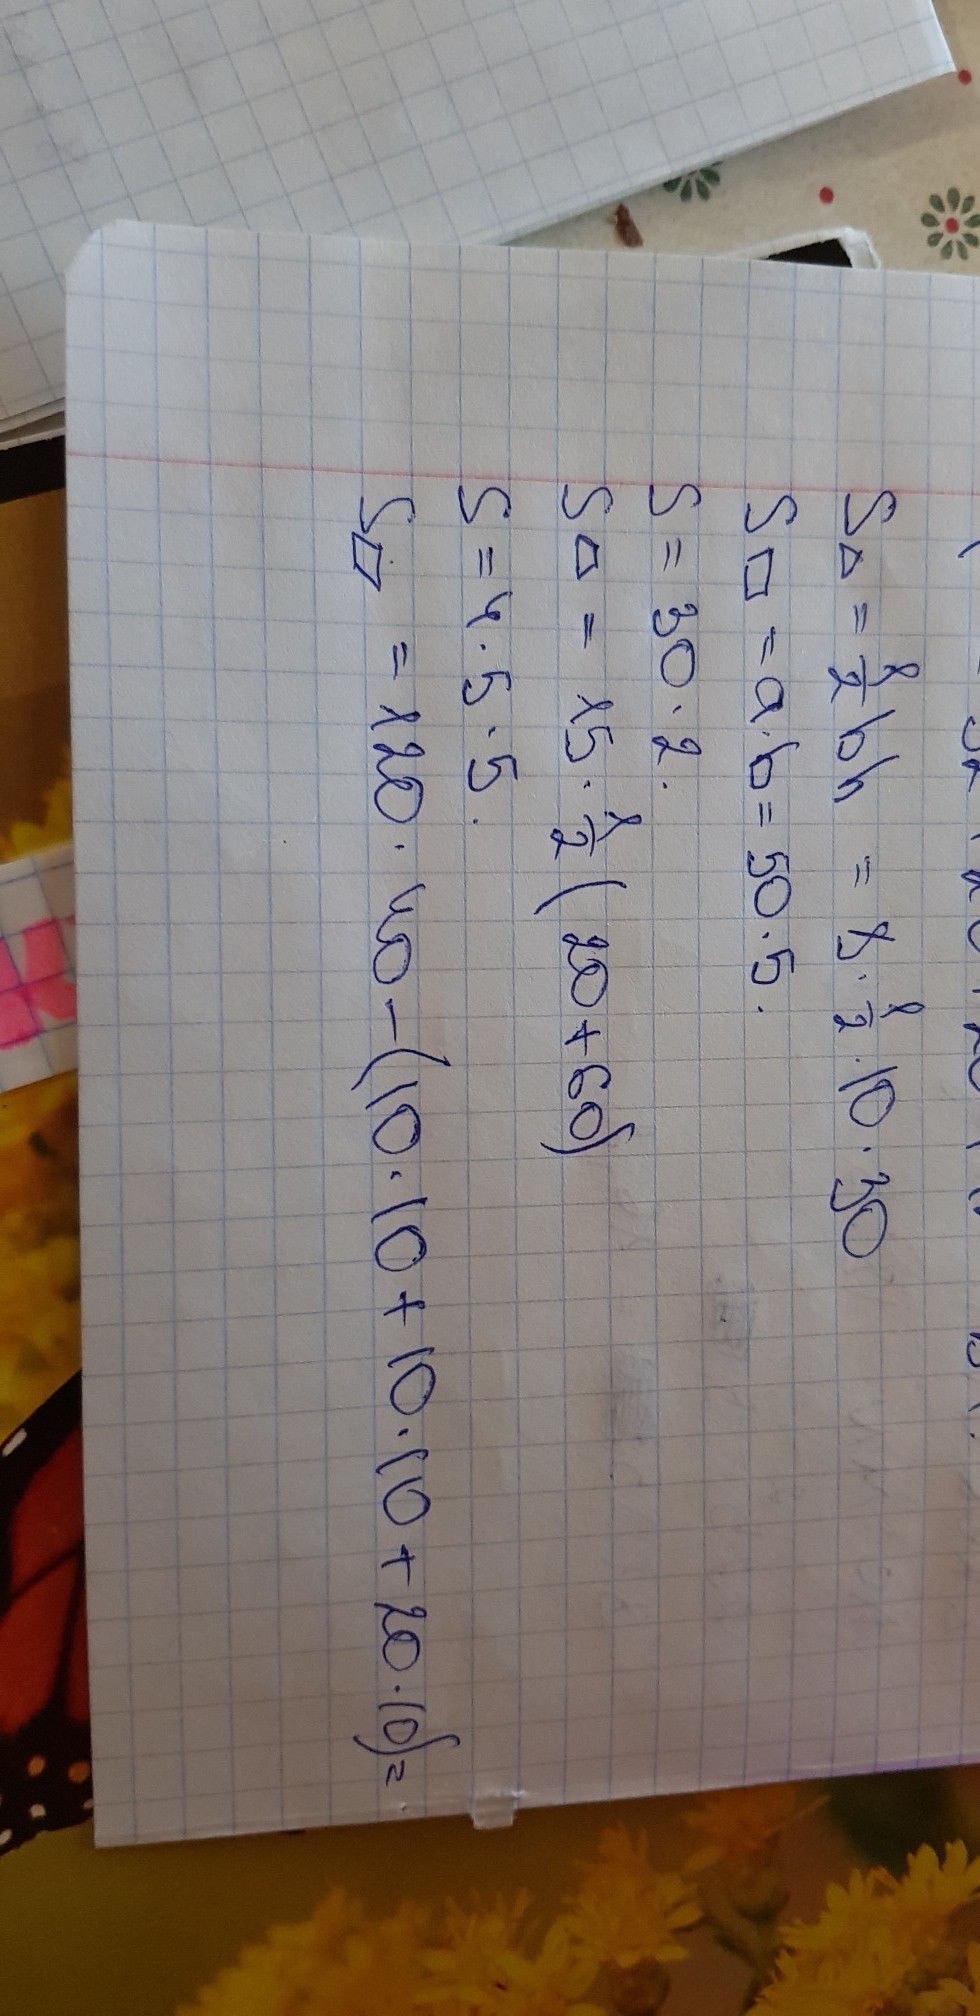 S△ = 1/2 bh = 8 · 1/2 · 10 · 30
S□ = a · b = 50 · 5.
S = 30 · 2.
S⏢ = 15 · 1/2 (20 + 60)
S = 4 · 5 · 5.
S▱ = 120 · 40 − (10 · 10 + 10 · 10 + 20 · 10) =